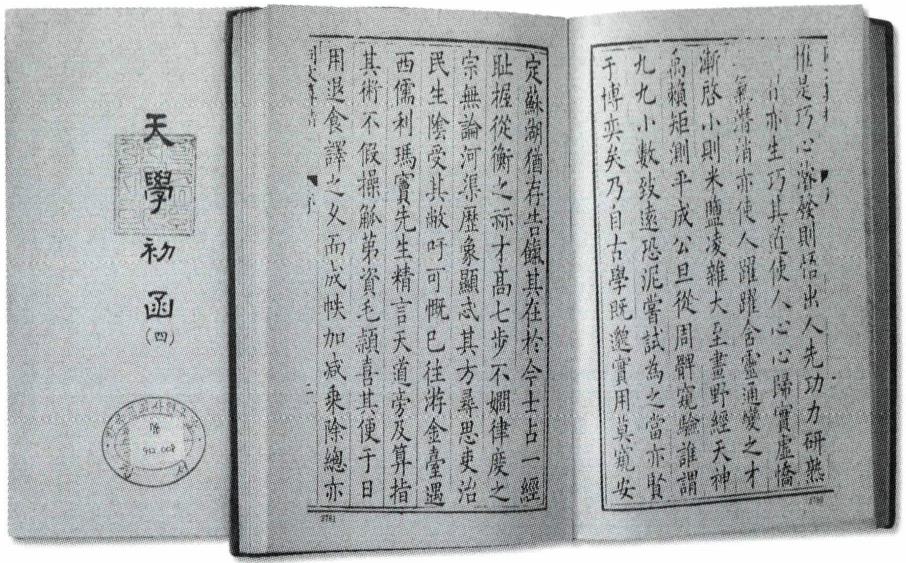 天學初函
(四)
惟是巧心濬發則悟出人先功力研熟
亦生巧其道使人心心歸實虛憍
氣潛消亦使人躍躍含靈通變之才
漸啓小則米鹽凌雜大至畫野經天神
禹賴矩測平成公旦從周髀窺驗誰謂
九九小數致遠恐泥嘗試為之當亦賢
于博奕矣乃自古學既邈實用莫窺安
2780
定蘇湖猶存告餼其在於今士占一經
耻握從衡之祘才高七步不嫺律度之
宗無論河渠歷象顯忒其方尋思吏治
民生陰受其敝吁可慨已往游金臺遇
西儒利瑪竇先生精言天道旁及算指
其術不假操觚第資毛頴喜其便于日
用退食譯之久而成帙加减乘除總亦
二
2781